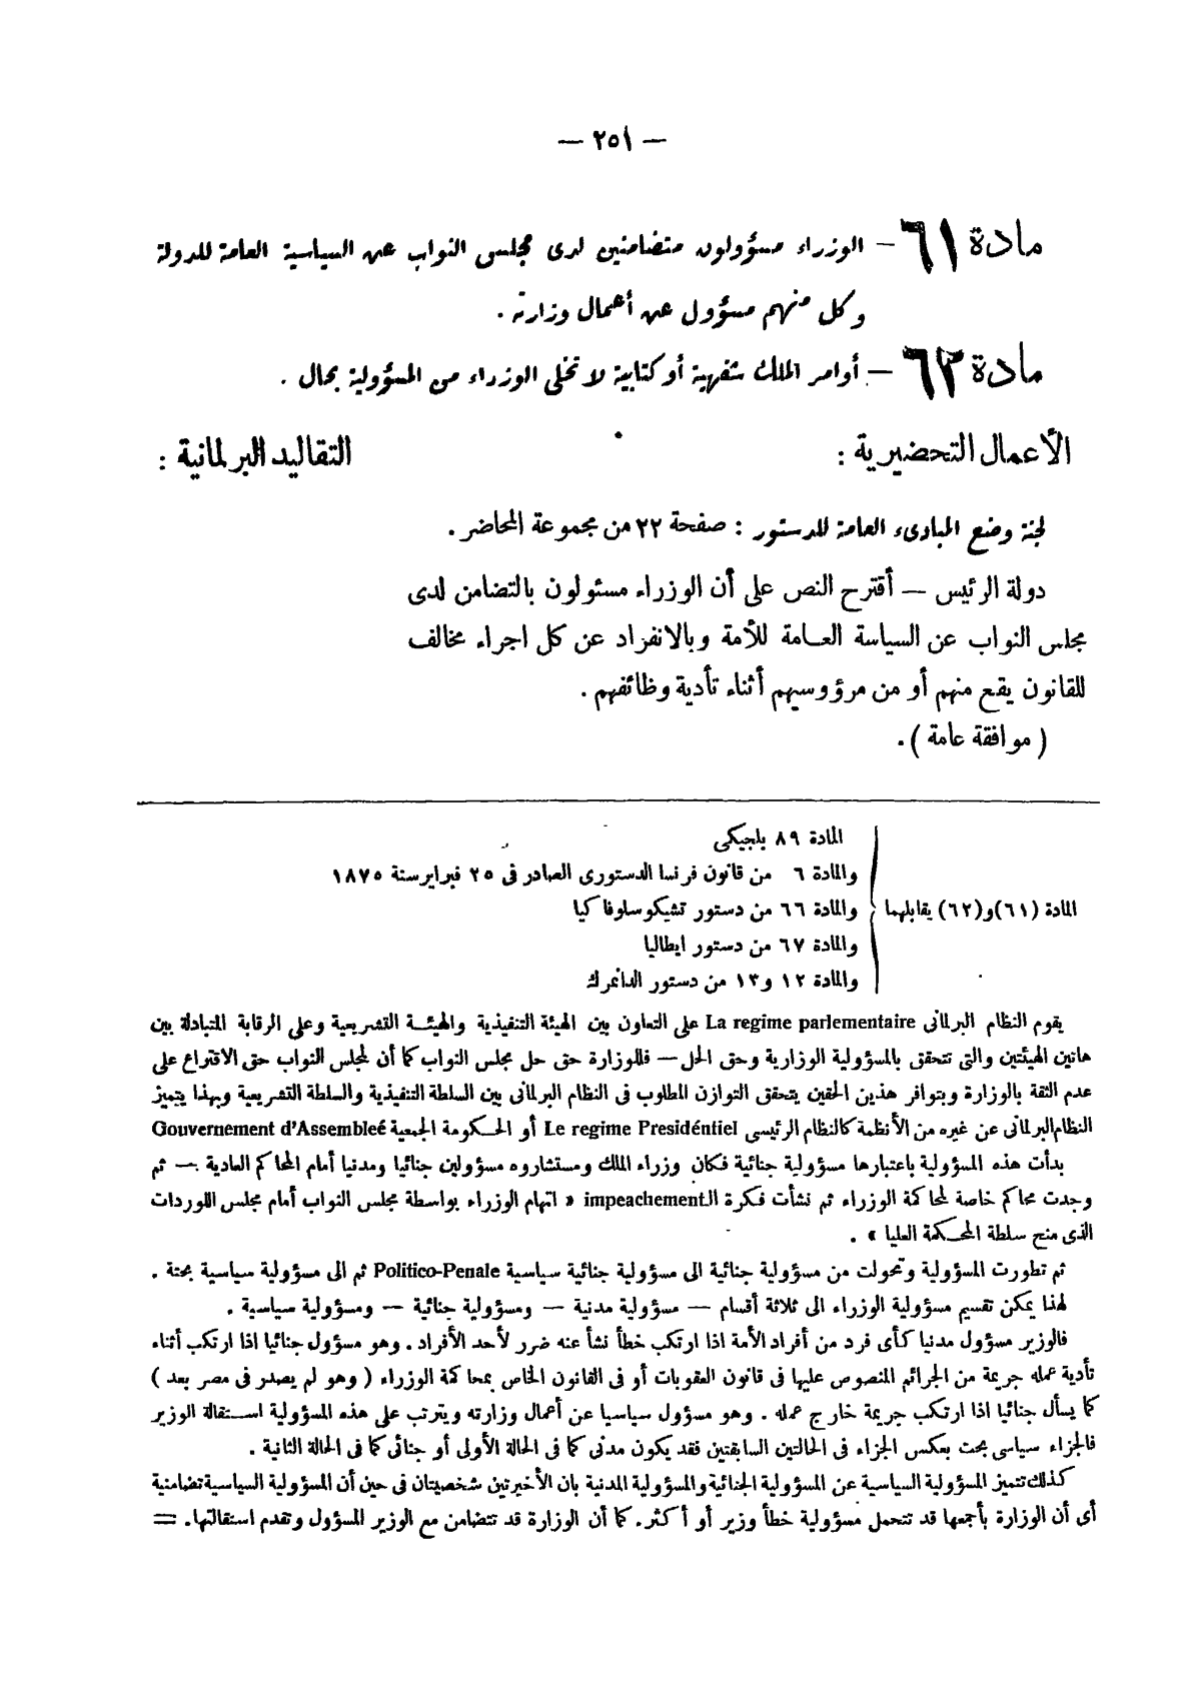 — ٢٥١ —
مادة ٦١ — الوزراء مسؤولون متضامنين لدى مجلس النواب عن السياسية العامة للدولة
وكل منهم مسؤول عن أعمال وزارته .
مادة ٦٢ — أوامر الملك شفهية أو كتابية لا تخلى الوزراء من المسؤولية بحال .
الأعمال التحضيرية :
التقاليد البرلمانية :
لجنة وضع المبادىء العامة للدستور : صفحة ٢٢ من مجموعة المحاضر .
دولة الرئيس — أقترح النص على أن الوزراء مسئولون بالتضامن لدى
مجلس النواب عن السياسة العامة للأمة وبالانفراد عن كل اجراء مخالف
للقانون يقع منهم أو من مرؤوسيهم أثناء تأدية وظائفهم .
( موافقة عامة ) .
المادة (٦١) و(٦٢) يقابلهما
المادة ٨٩ بلجيكى
والمادة ٦ من قانون فرنسا الدستورى الصادر فى ٢٥ فبراير سنة ١٨٧٥
والمادة ٦٦ من دستور تشيكوسلوفاكيا
والمادة ٦٧ من دستور ايطاليا
والمادة ١٢ و١٣ من دستور الدانمرك
يقوم النظام البرلمانى La regime parlementaire على التعاون بين الهيئة التنفيذية والهيئة التشريعية وعلى الرقابة المتبادلة بين
هاتين الهيئتين والتى تتحقق بالمسؤولية الوزارية وحق الحل — فللوزارة حق حل مجلس النواب كما أن لمجلس النواب حق الاقتراع على
عدم الثقة بالوزارة وبتوافر هذين الحقين يتحقق التوازن المطلوب فى النظام البرلمانى بين السلطة التنفيذية والسلطة التشريعية وبهذا يتميز
النظام البرلمانى عن غيره من الأنظمة كالنظام الرئيسى Le regime Presidéntiel أو الحكومة الجمعية Gouvernement d'Assembleé
بدأت هذه المسؤولية باعتبارها مسؤولية جنائية فكان وزراء الملك ومستشاروه مسؤولين جنائيا ومدنيا أمام المحاكم العادية — ثم
وجدت محاكم خاصة لمحاكمة الوزراء ثم نشأت فكرة الـ impeachement « اتهام الوزراء بواسطة مجلس النواب أمام مجلس اللوردات
الذى منح سلطة المحكمة العليا » .
ثم تطورت المسؤولية وتحولت من مسؤولية جنائية الى مسؤولية جنائية سياسية Politico-Penale ثم الى مسؤولية سياسية بحتة .
لهذا يمكن تقسيم مسؤولية الوزراء الى ثلاثة أقسام — مسؤولية مدنية — ومسؤولية جنائية — ومسؤولية سياسية .
فالوزير مسؤول مدنيا كأى فرد من أفراد الأمة اذا ارتكب خطأ نشأ عنه ضرر لأحد الأفراد . وهو مسؤول جنائيا اذا ارتكب أثناء
تأدية عمله جريمة من الجرائم المنصوص عليها فى قانون العقوبات أو فى القانون الخاص بمحاكمة الوزراء ( وهو لم يصدر فى مصر بعد )
كما يسأل جنائيا اذا ارتكب جريمة خارج عمله . وهو مسؤول سياسيا عن أعمال وزارته ويترتب على هذه المسؤولية استقالة الوزير
فالجزاء سياسى بحت بعكس الجزاء فى الحالتين السابقتين فقد يكون مدنى كما فى الحالة الأولى أو جنائى كما فى الحالة الثانية .
كذلك تتميز المسؤولية السياسية عن المسؤولية الجنائية والمسؤولية المدنية بان الأخيرتين شخصيتان فى حين أن المسؤولية السياسية تضامنية
أى أن الوزارة بأجمعها قد تتحمل مسؤولية خطأ وزير أو أكثر . كما أن الوزارة قد تتضامن مع الوزير المسؤول وتقدم استقالتها . =